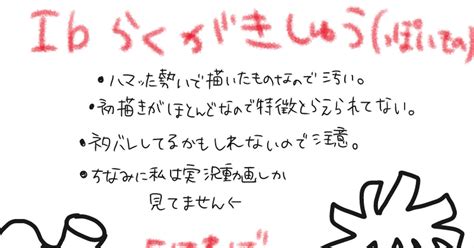 Ib らくがきしゅう(っぽいもの)
•ハマった勢いで描いたものなので汚い。
•初描きがほとんどなので特徴とらえられてない。
•ネタバレしてるかもしれないので注意。
•ちなみに私は実況動画しか
見てません←